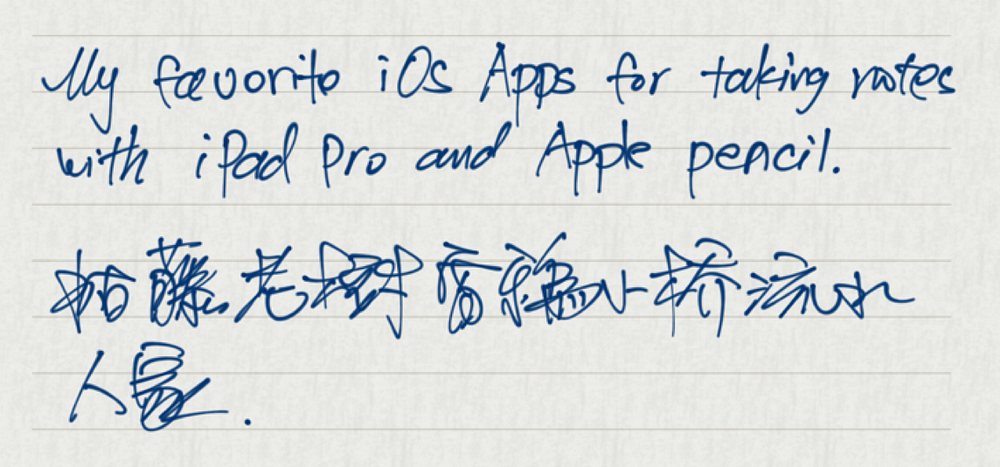 My favorite iOs Apps for taking notes
with iPad Pro and Apple pencil.
枯藤老树昏鸦小桥流水
人家.